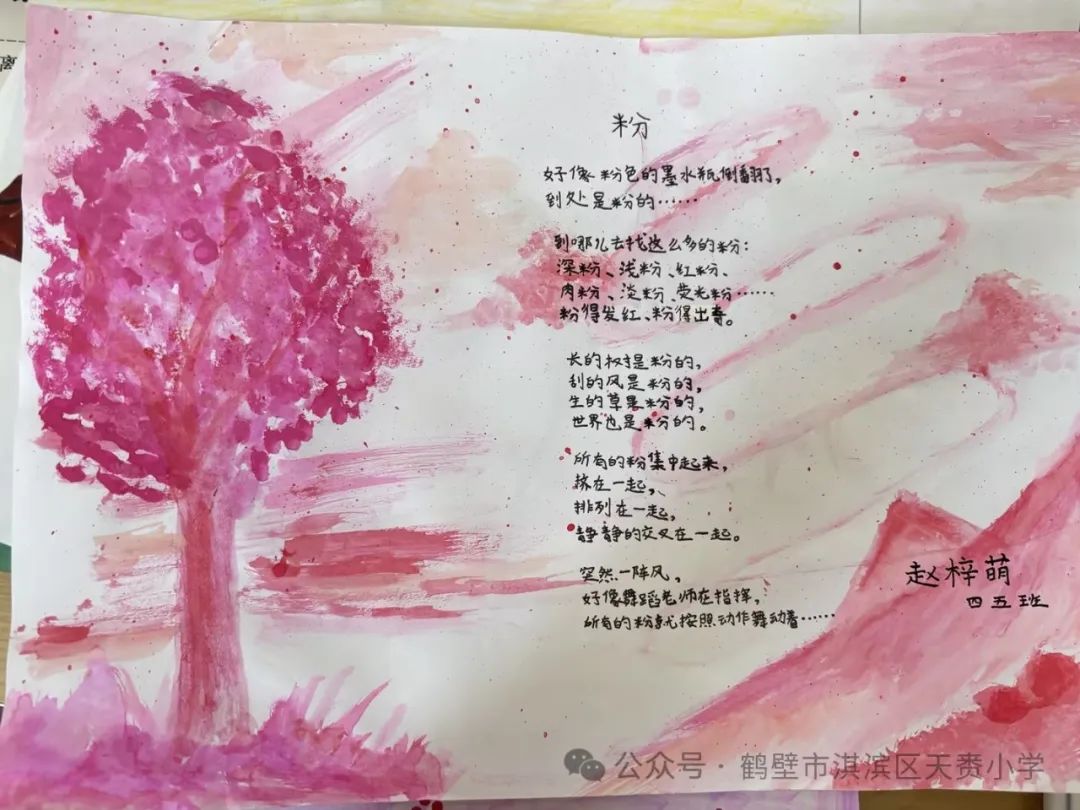 粉
好像粉色的墨水瓶倒翻了,
到处是粉的……
到哪儿去找这么多的粉:
深粉、浅粉、红粉、
肉粉、淡粉、荧光粉……
粉得发红、粉得出奇。
长的树是粉的,
刮的风是粉的,
生的草是粉的,
世界也是粉的。
所有的粉集中起来,
挤在一起,
排列在一起,
静静的交叉在一起。
突然一阵风,
好像舞蹈老师在指挥,
所有的粉就按照动作舞动着……
赵梓萌
四五班
公众号·鹤壁市淇滨区天赉小学
离